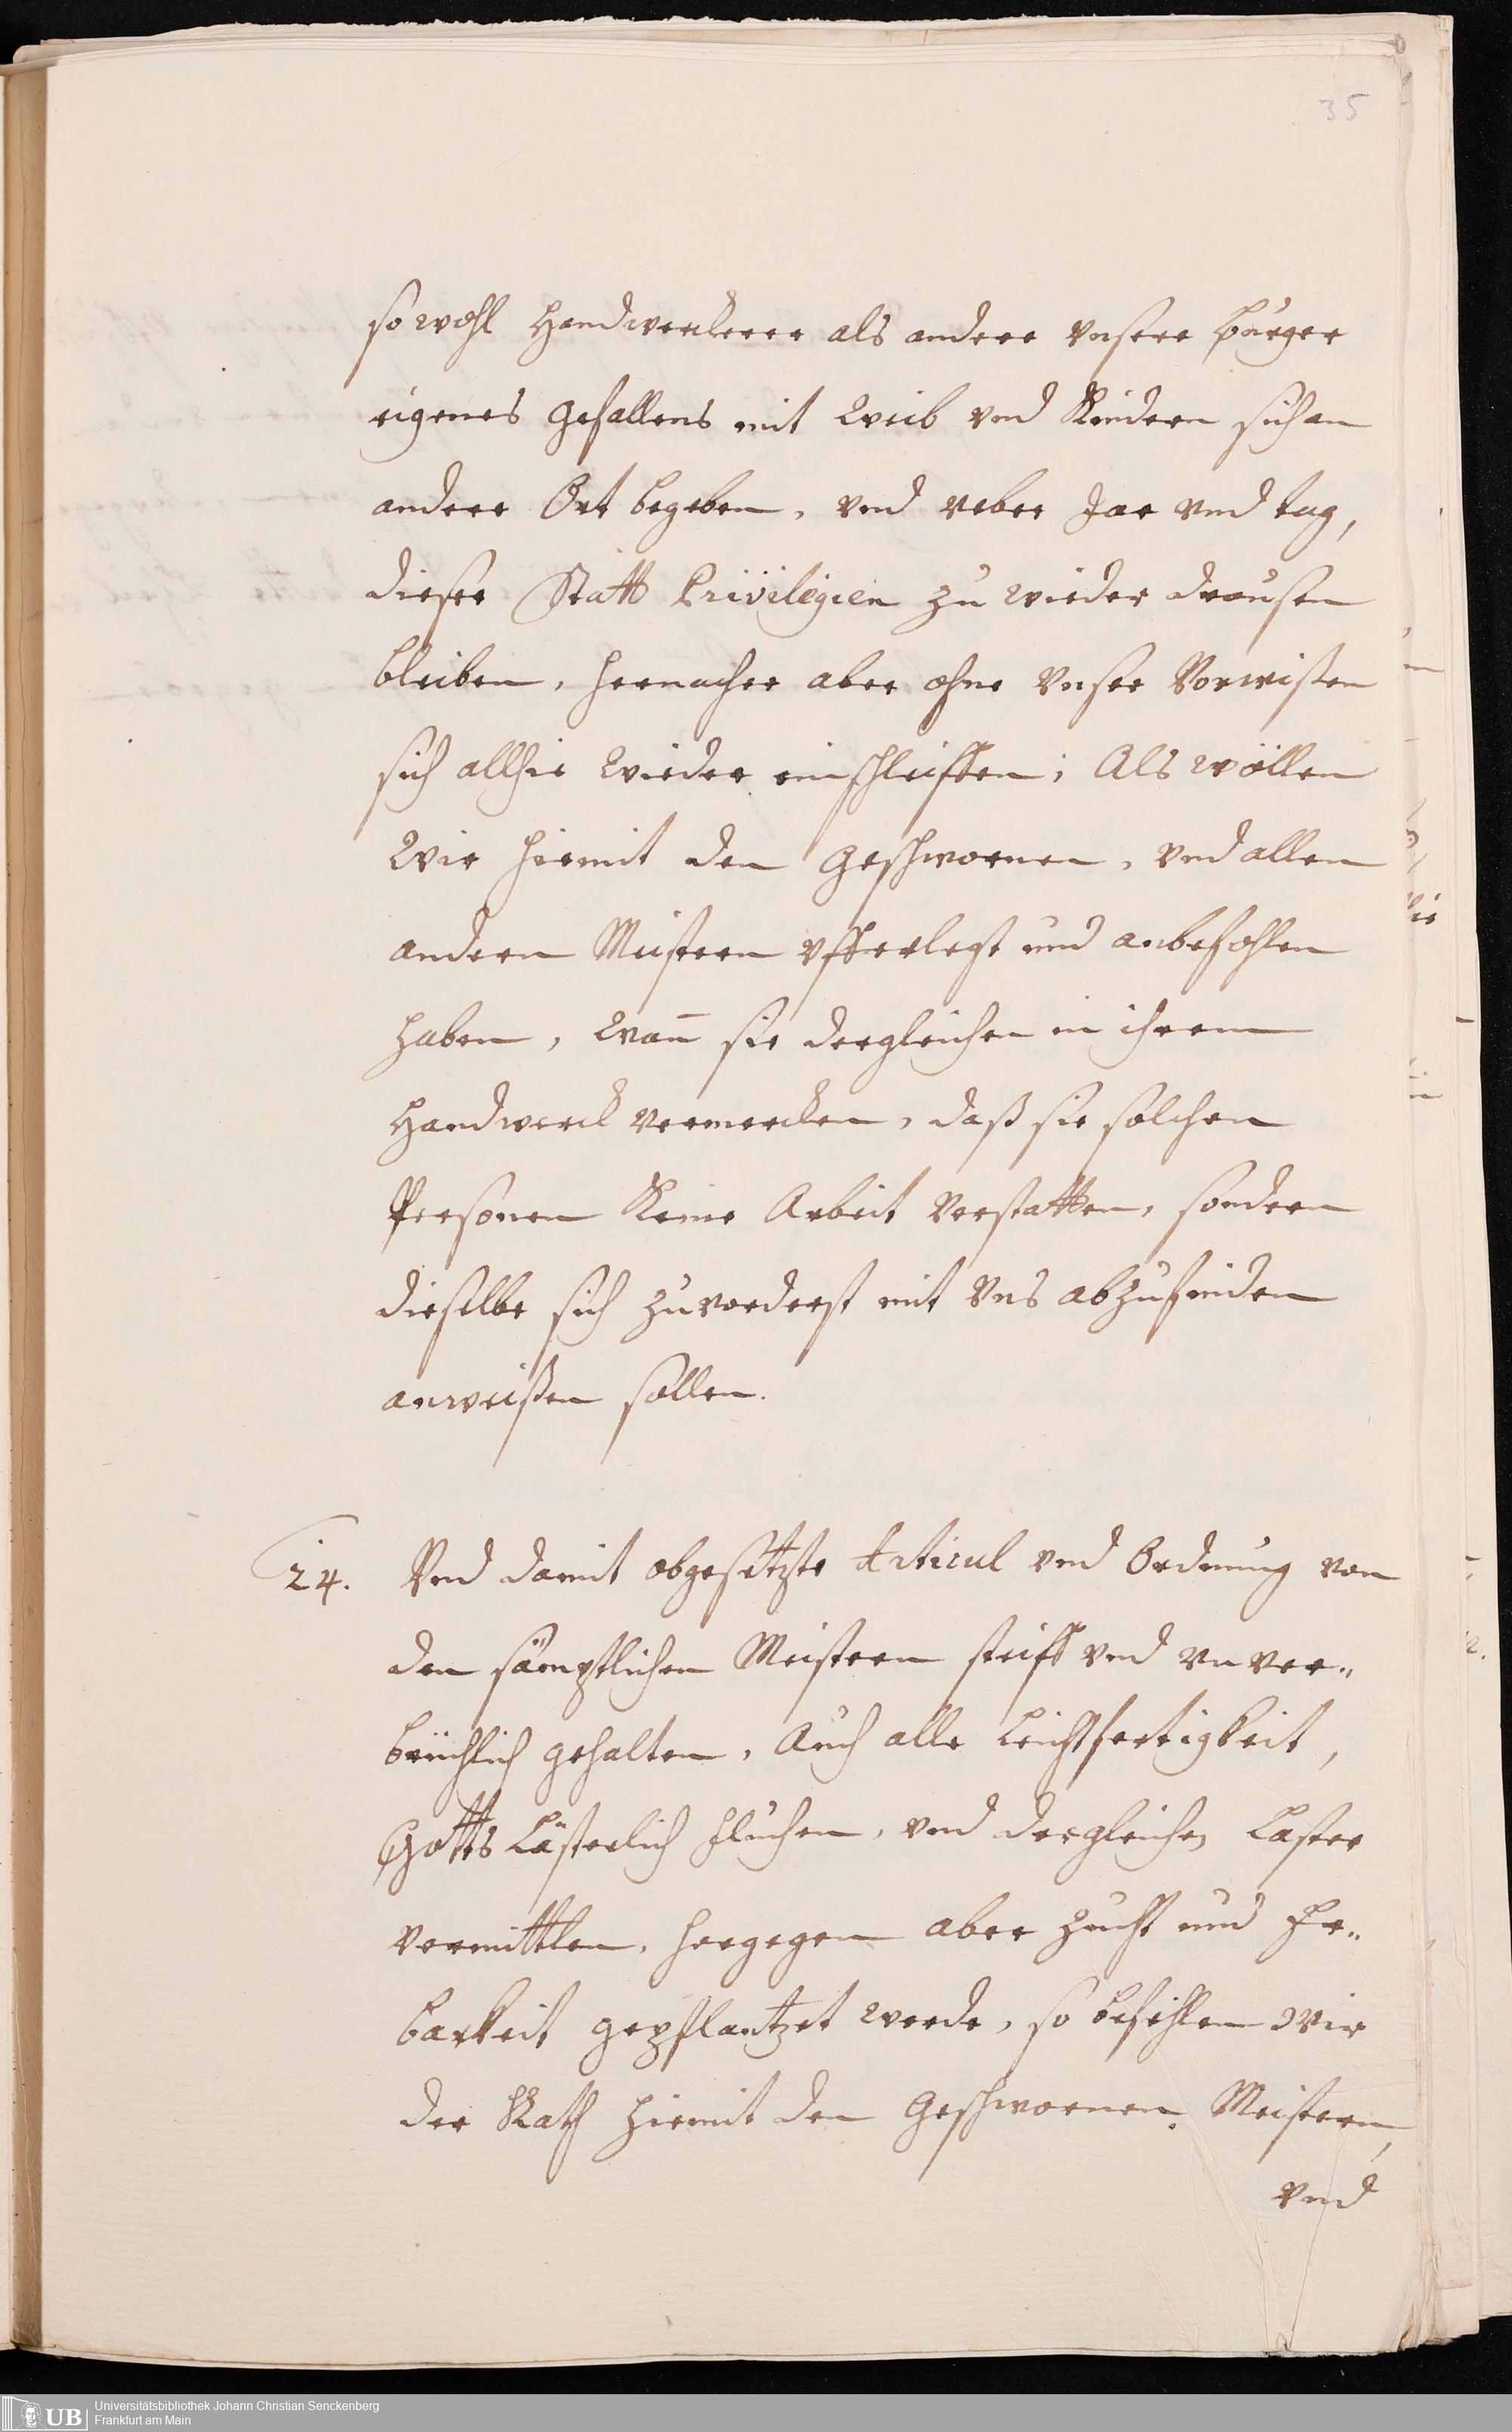 35
so wohl Handwerckere als andere vnsere bürger
eigenes gefallens mit Weib vnd Kindern sich an
andere Ort begeben, vnd veber Jar vnd tag,
dieser Statt Privilegien zu wieder draussen
bleiben, hernacher aber ohne vnser Vorwissen
sich allhie wieder einschleiffen; Als wöllen
Wir hiemit den Geschwornen, vnd allen
andern Meistern vfferlegt und anbefohlen
haben, Wan̄ sie dergleichen in ihrem
Handwerck vermercken, daß sie solchen
Personen Keine Arbeit verstatten, sondern
dieselbe sich zuvorderst mit Vns abzufinden
anweissen sollen.
24. Vnd damit obgesetzte Articul vnd Ordnung von
den sämptlichen Meistern steiff vnd vnver„
brüchlich gehalten, Auch alle Leichtfertigkeit,
Gotts Lästerlich fluchen, vnd dergleichen Laster
vermittlen, hergegen aber Zucht und Er„
barkeit gepflantzet werde, so befehlen Wir
der Rath hiemit den Geschwornen Meistern,
vnd
UB Universitätsbibliothek Johann Christian Senckenberg
Frankfurt am Main